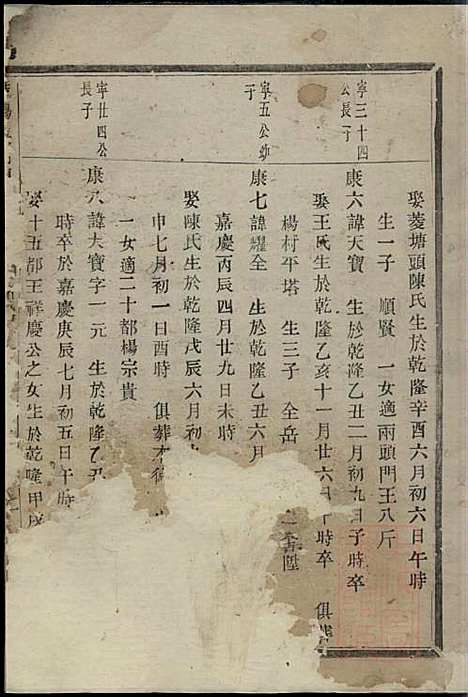 娶菱塘頭陳氏生於乾隆辛酉六月初六日午時
生一子 順賢 一女適兩頭門王八斤
寧三十四公長子
康六諱天寶 生於乾隆乙丑二月初九日子時卒
娶王氏生於乾隆乙亥十一月廿六日 午時卒 俱葬
楊村平塔 生三子 全岳 陞
寧五公幼子
康七諱耀全 生於乾隆乙丑六月
嘉慶丙辰四月廿九日未時
娶陳氏生於乾隆戊辰六月初
申七月初一日酉時 俱葬本
一女適二十都楊宗貴
寧廿四公長子
康八諱大寶字一元 生於乾隆乙丑
時卒於嘉慶庚辰七月初五日午時
娶十五都王祥慶公之女生於乾隆甲戌